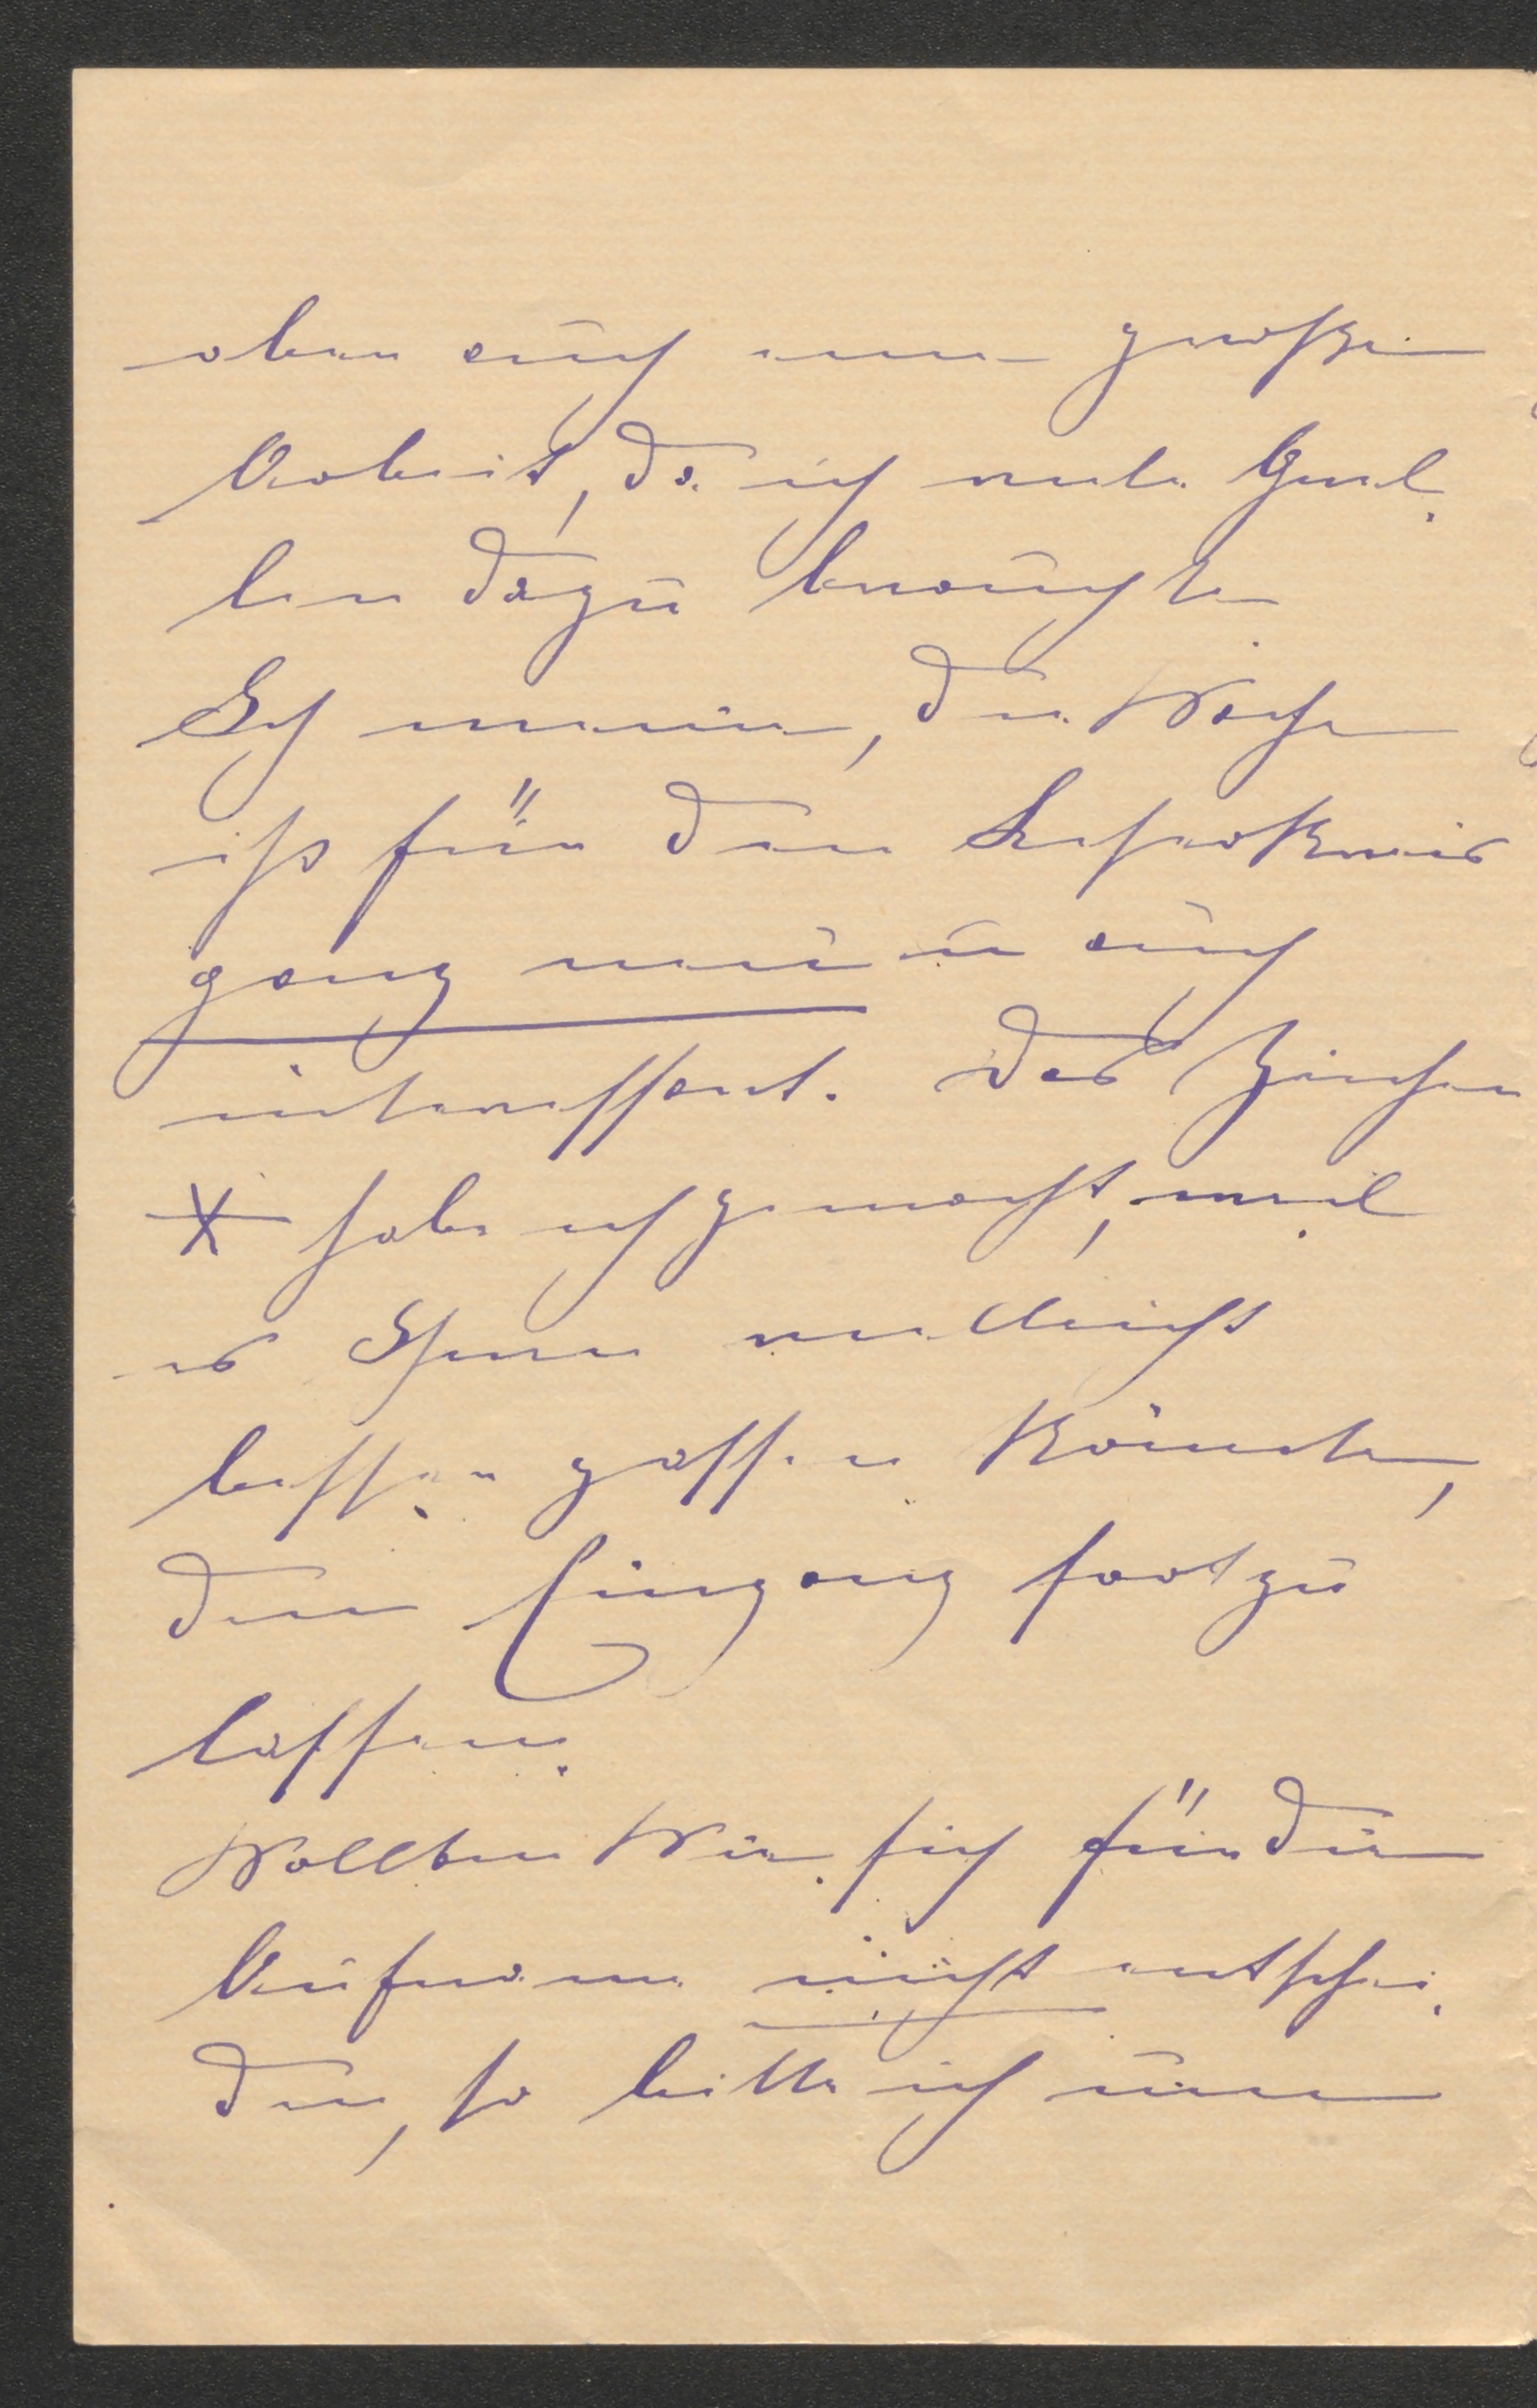 aber auch eine große
Arbeit, da ich viele Quel-
len dazu brauchte
Ich meine, die Sache
ist für den Leserkreis
ganz neu u auch
interessant. Das Zeichen
X habe ich gemacht, weil
es Ihnen vielleicht
besser passen könnte,
den Eingang fortzu
lassen.
Sollten Sie sich für die
Aufname nicht entschei-
den, so bitte ich um